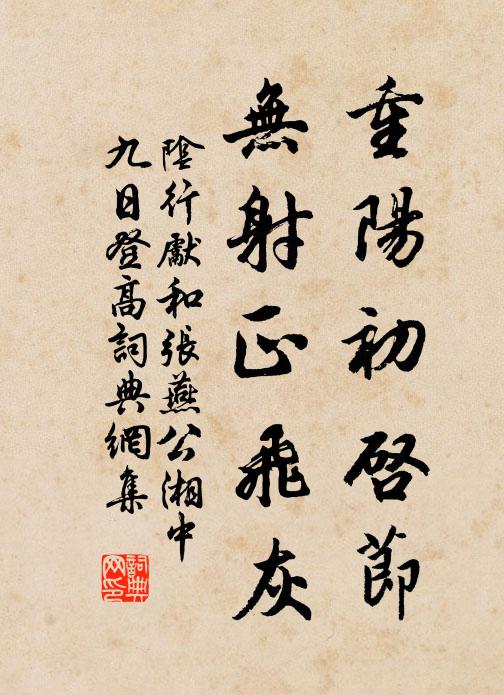 重陽初啓節
無射正飛灰
陰行獻和張燕公湘中
九日登高詞典網集
詞典
网印